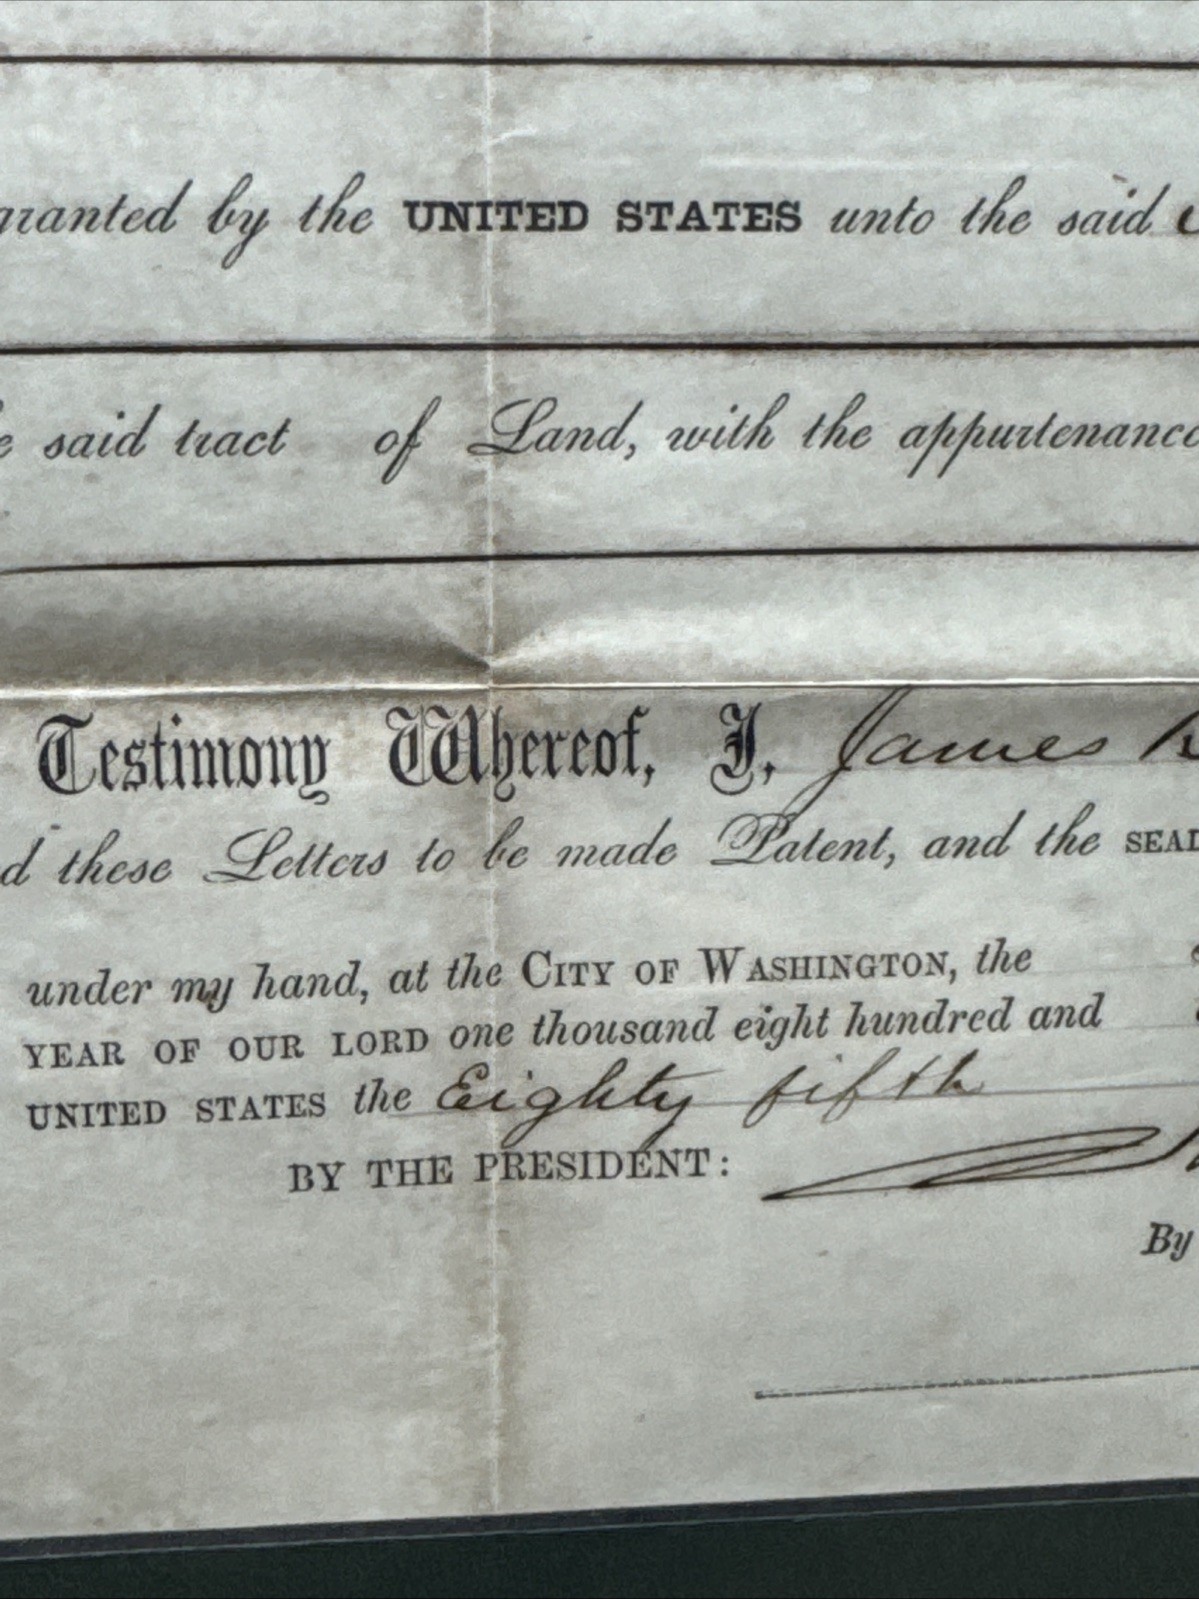 granted by the UNITED STATES unto the said
said tract of Land, with the appurtenance
Testimony Whereof, I, James
these Letters to be made Patent, and the SEAL
under my hand, at the CITY OF WASHINGTON, the
YEAR OF OUR LORD one thousand eight hundred and
UNITED STATES the Eighty fifth
BY THE PRESIDENT:
By